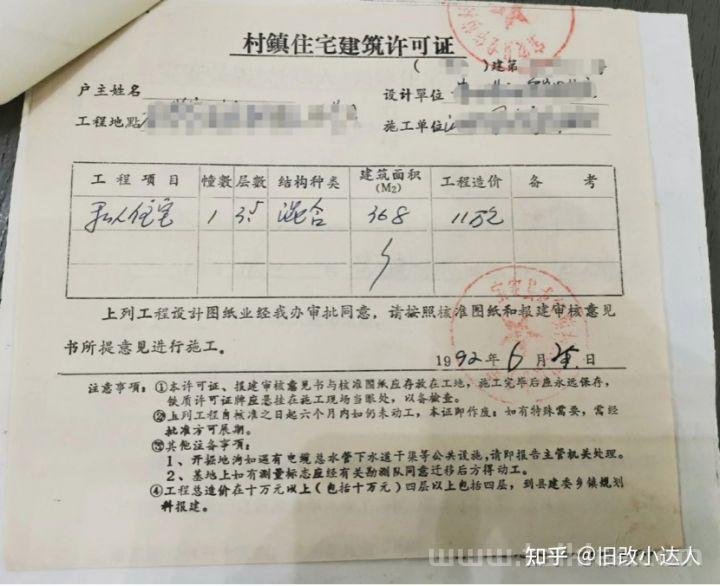 村鎮住宅建筑许可证
( )建第
户主姓名 设计單位
工程地點 施工单位
工程项目 幢数 层数 结构种类 建筑面积(M₂) 工程造价 备考
私人住宅 1 3.5 混合 368 11万元
上列工程设计图纸业经我办审批同意，请按照核准图纸和报建审核意见
书所提意见进行施工。
1992年6月 日
注意事项：①本许可证、报建审核意见书与核准图纸应存放在工地，施工完毕后应永远保存，
铁质许可证牌应悬挂在施工现场当眼处，以备验查。
②上列工程自核准之日起六个月内如仍未动工，本证即作废；如有特殊需要，需经
批准方可展期。
③其他注备事项：
1、开挖地沟如遇有电缆总水管下水道干渠等公共设施，请即报告主管机关处理。
2、基地上如有测量标志应经有关勘测队同意迁移后方得动工。
④工程总造价在十万元以上（包括十万元）四层以上包括四层，到县建委乡镇规划
科报建。
知乎 @旧改小达人